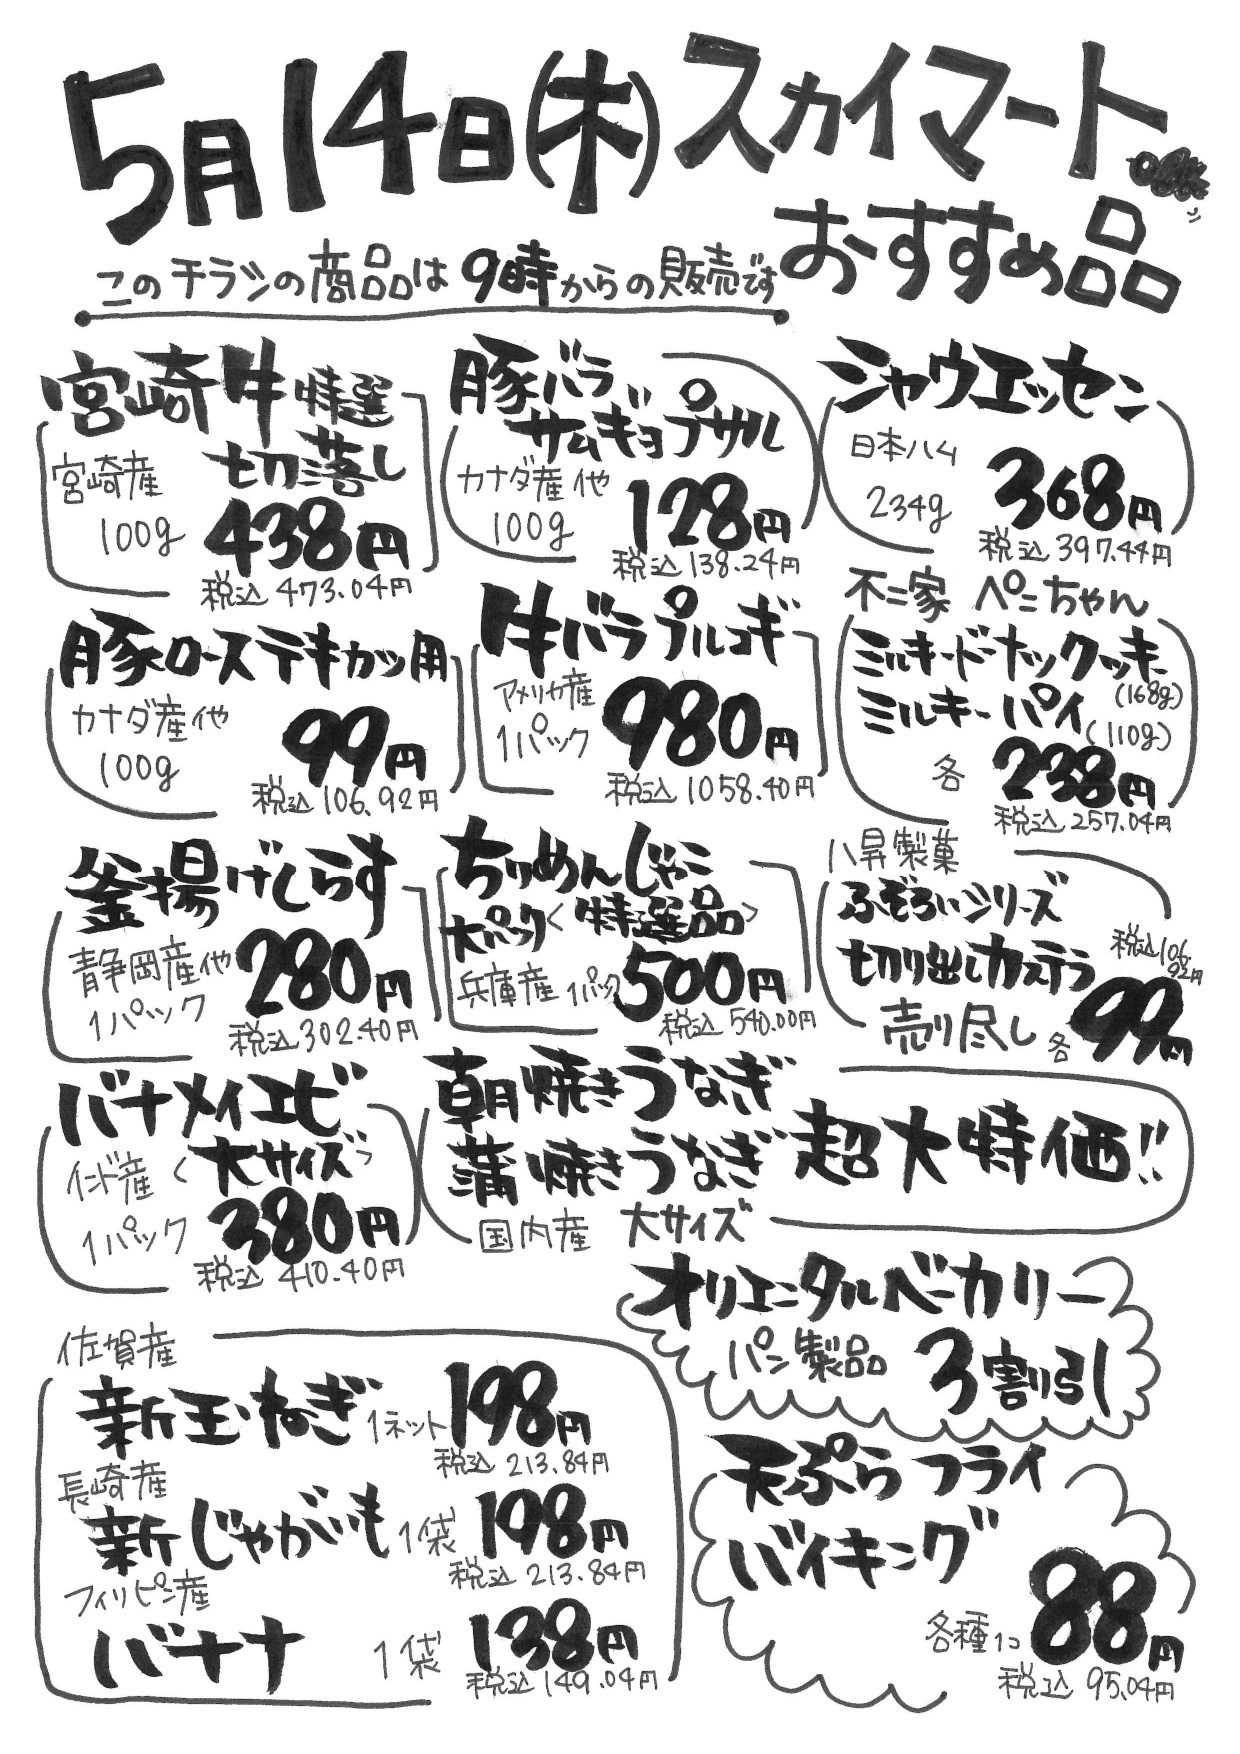 5月14日(木)スカイマート
おすすめ品
このチラシの商品は9時からの販売です
宮崎牛特選
切落し
宮崎産
100g
438円
税込473.04円
豚バラ
サムギョプサル
カナダ産他
100g
128円
税込138.24円
シャウエッセン
日本ハム
234g
368円
税込397.44円
豚ローステキカツ用
カナダ産他
100g
99円
税込106.92円
牛バラプルコギ
アメリカ産
1パック
980円
税込1058.40円
不二家 ペコちゃん
ミルキードーナックッキー
(168g)
ミルキーパイ
(110g)
各
238円
税込257.04円
釜揚げしらす
静岡産他
1パック
280円
税込302.40円
ちりめんじゃこ
大パック<特選品>
兵庫産 1パック
500円
税込540.00円
八昇製菓
ふぞろいシリーズ
切り出しカステラ
売り尽し 各
99円
税込106.
92円
バナメイエビ
インド産<大サイズ>
1パック
380円
税込410.40円
朝焼きうなぎ
蒲焼きうなぎ
国内産 大サイズ
超大特価!!
オリエンタルベーカリー
パン製品 3割引
佐賀産
新玉ねぎ 1ネット 198円
税込213.84円
長崎産
新じゃがいも 1袋 198円
税込213.84円
フィリピン産
バナナ 1袋 138円
税込149.04円
天ぷらフライ
バイキング
各種1コ 88円
税込95.04円